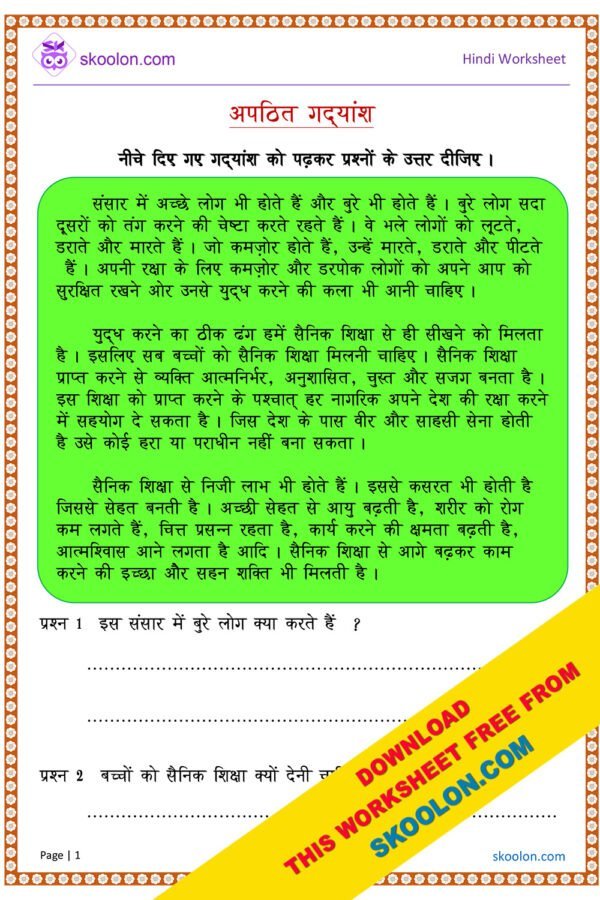 SK
skoolon.com
Hindi Worksheet
अपठित गद्यांश
नीचे दिए गए गद्यांश को पढ़कर प्रश्नों के उत्तर दीजिए ।
संसार में अच्छे लोग भी होते हैं और बुरे भी होते हैं । बुरे लोग सदा
दूसरों को तंग करने की चेष्टा करते रहते हैं । वे भले लोगों को लूटते,
डराते और मारते हैं । जो कमज़ोर होते हैं, उन्हें मारते, डराते और पीटते
हैं । अपनी रक्षा के लिए कमज़ोर और डरपोक लोगों को अपने आप को
सुरक्षित रखने ओर उनसे युद्ध करने की कला भी आनी चाहिए ।
युद्ध करने का ठीक ढंग हमें सैनिक शिक्षा से ही सीखने को मिलता
है । इसलिए सब बच्चों को सैनिक शिक्षा मिलनी चाहिए । सैनिक शिक्षा
प्राप्त करने से व्यक्ति आत्मनिर्भर, अनुशासित, चुस्त और सजग बनता है ।
इस शिक्षा को प्राप्त करने के पश्चात् हर नागरिक अपने देश की रक्षा करने
में सहयोग दे सकता है । जिस देश के पास वीर और साहसी सेना होती
है उसे कोई हरा या पराधीन नहीं बना सकता ।
सैनिक शिक्षा से निजी लाभ भी होते हैं । इससे कसरत भी होती है
जिससे सेहत बनती है । अच्छी सेहत से आयु बढ़ती है, शरीर को रोग
कम लगते हैं, चित्त प्रसन्न रहता है, कार्य करने की क्षमता बढ़ती है,
आत्मश्विास आने लगता है आदि । सैनिक शिक्षा से आगे बढ़कर काम
करने की इच्छा और सहन शक्ति भी मिलती है ।
प्रश्न 1 इस संसार में बुरे लोग क्या करते हैं ?
प्रश्न 2 बच्चों को सैनिक शिक्षा क्यों देनी
DOWNLOAD
THIS WORKSHEET FREE FROM
SKOOLON.COM
Page | 1
skoolon.com